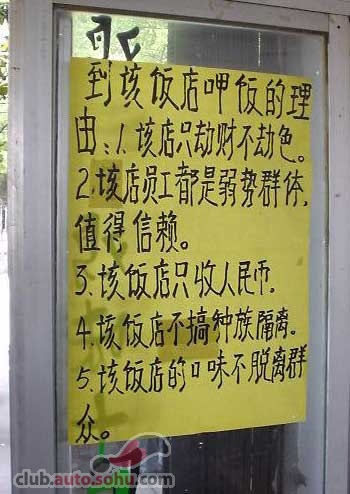 到该饭店呷饭的理
由:1.该店只劫财不劫色。
2.该店员工都是弱势群体,
值得信赖。
3.该饭店只收人民币.
4.该饭店不搞种族隔离。
5.该饭店的口味不脱离群
众。
club.auto.sohu.com